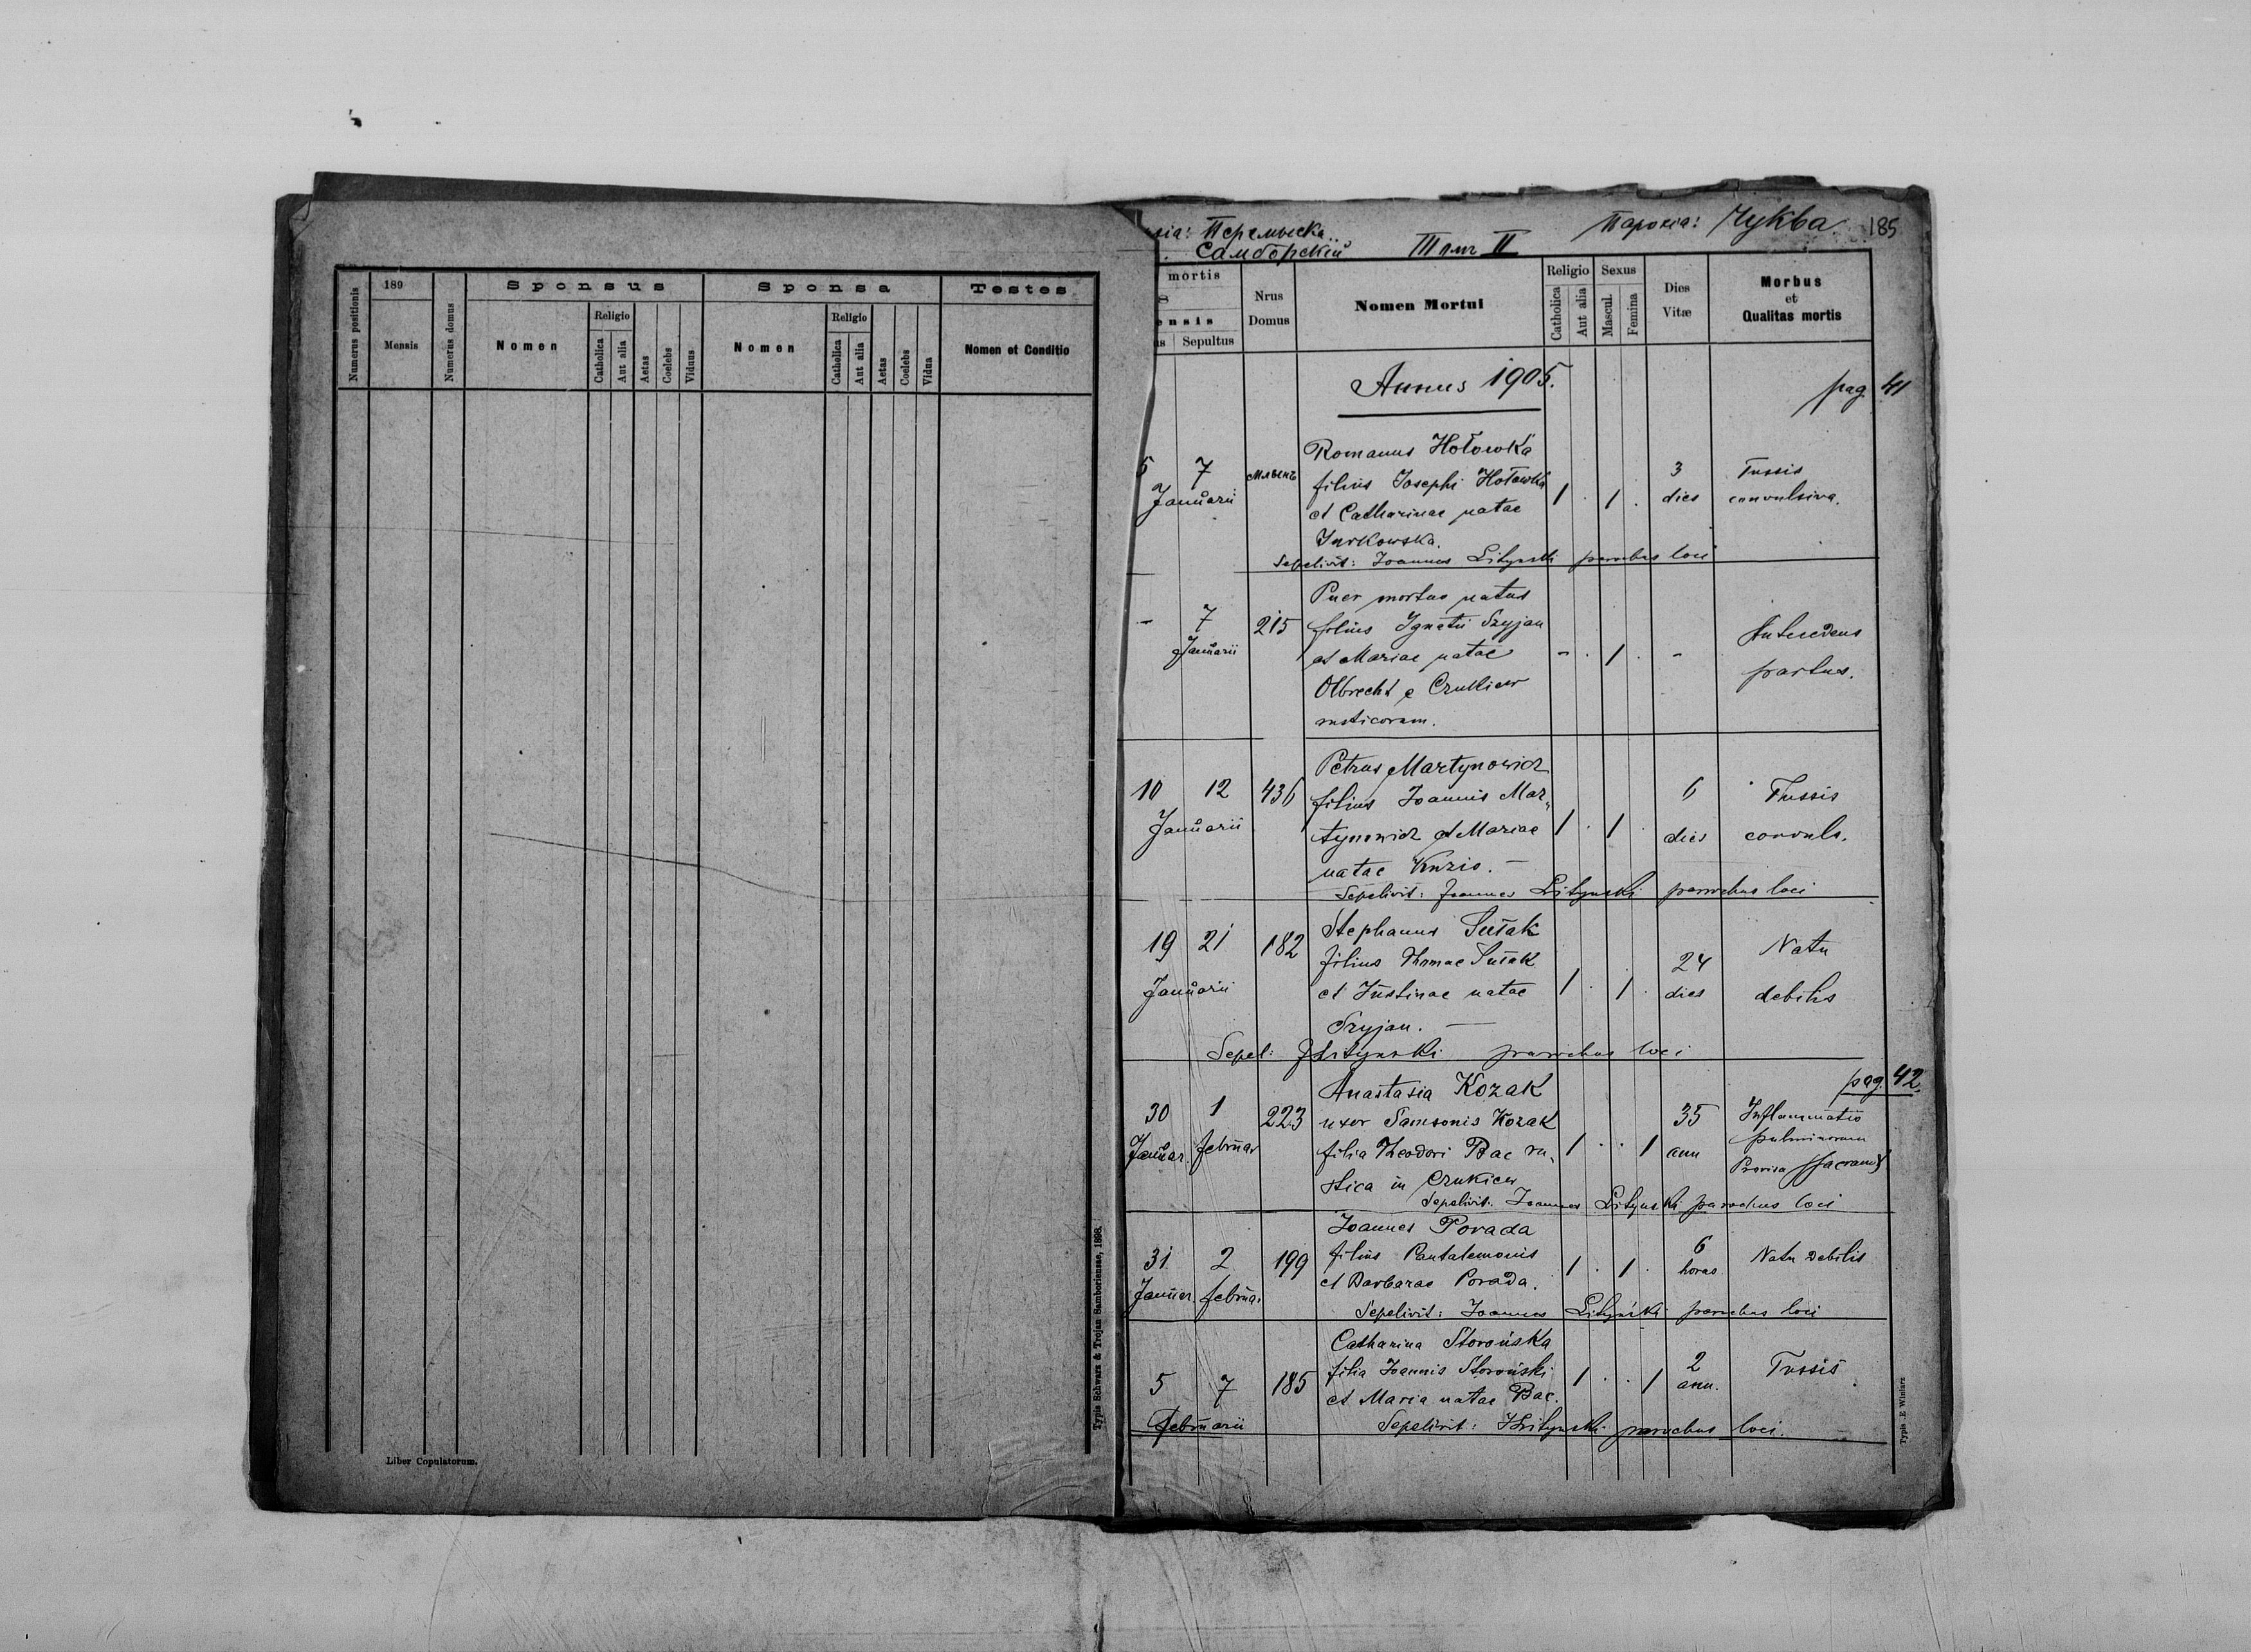 Numerus positionis
189
Mensis
Numerus domus
Sponsus
Nomen
Religio
Catholica
Aut alia
Aetas
Coelebs
Vidnus
Sponsa
Nomen
Religio
Catholica
Aut alia
Aetas
Coelebs
Vidua
Testes
Nomen et Conditio
Liber Copulatorum.
Typis Schwarz & Trojan Samboriensae, 1898.
Перемыска Парохіа: Чуква 185
Самборскій Томъ II
mortis
ensis
Sepultus
Nrus
Domus
Nomen Mortui
Religio
Catholica
Aut alia
Sexus
Mascul.
Femina
Dies
Vitæ
Morbus
et
Qualitas mortis
Annus 1905.
pag. 41
5 7
Januarii
Romanus Hołowka
filius Josephi Hołowka
et Catharinae natae
Jurkowska.
1 . 1 .
3
dies
Tussis
convulsiva.
Sepelivit: Joannes Litynski parochus loci
- 7
Januarii
215
Puer mortuo natus
filius Ignatii Szyjan
et Mariae natae
Olbrecht e Czukiew
rusticorum.
- . 1 . -
Antecedens
partus.
10 12
Januarii
436
Petrus Martynowicz
filius Joannis Mar„
tynowicz et Mariae
natae Kuzio. —
1 . 1 .
6
dies
Tussis
convuls.
Sepelivit: Joannes Litynski parochus loci
19 21
Januarii
182
Stephanus Sušak
filius Thomae Sušak
et Justinae natae
Szyjan. —
1 . 1 .
24
dies
Natu
debilis
Sepel: J Litynski parochus loci
pag. 42.
30 1
Januar. februar
223
Anastasia Kozak
uxor Samsonis Kozak
filia Theodori Bac ru„
stica in Czukiew
1 . . 1
35
ann
Inflammatio
pulminorum
Provisa
Sepelivit: Joannes Litynski parochus loci
31 2
Januar. februar
199
Joannes Porada
filius Pantalemonis
et Barbarae Porada.
1 . 1 .
6
horas
Natu debilis
Sepelivit: Joannes Lityński parochus loci
5 7
Februarii
185
Catharina Storońska
filia Joannis Storoński
et Maria natae Bac.
1 . . 1
2
ann.
Tussis
Sepelivit: J Litynski parochus loci.
Typis E Winiarz